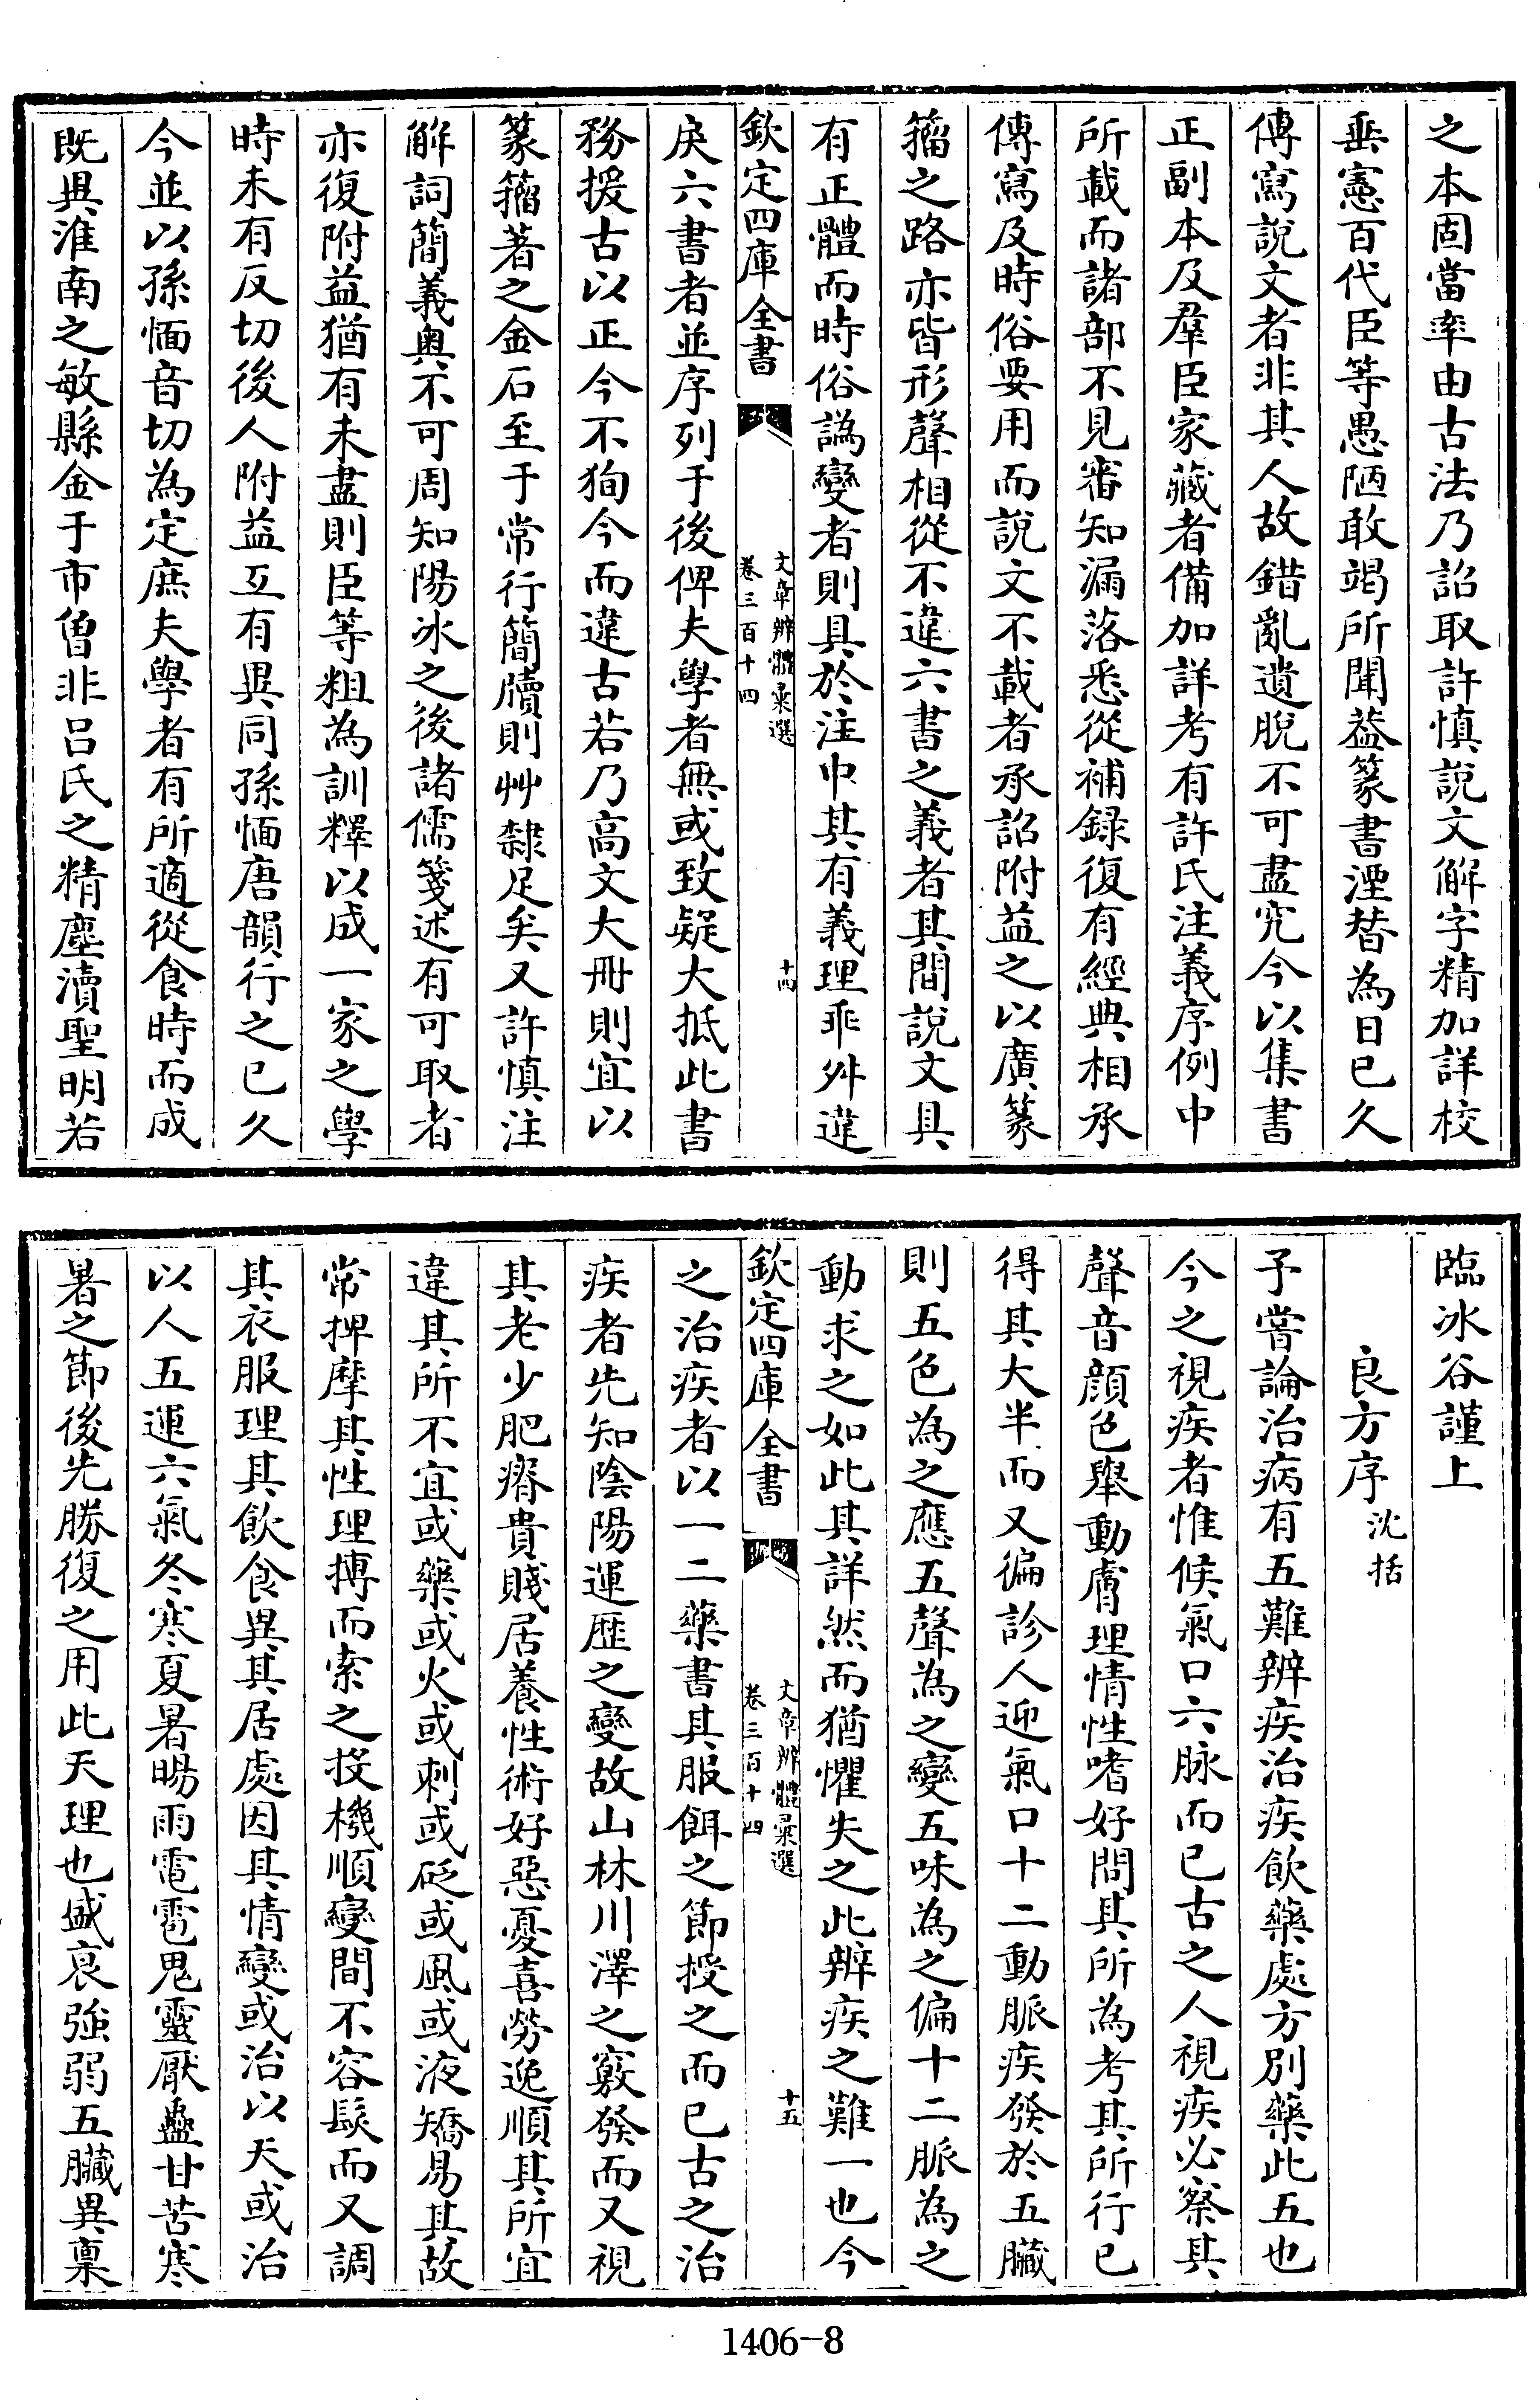 之本固當率由古法乃詔取許慎說文解字精加詳校
垂憲百代臣等愚陋敢竭所聞葢篆書湮替為日已久
傳寫說文者非其人故錯亂遺脫不可盡究今以集書
正副本及羣臣家藏者備加詳考有許氏注義序例中
所載而諸部不見審知漏落悉從補録復有經典相承
傳寫及時俗要用而說文不載者承詔附益之以廣篆
籀之路亦皆形聲相從不違六書之義者其間說文具
有正體而時俗譌變者則具於注中其有義理乖舛違
欽定四庫全書
文章辨體彚選
卷三百十四
十四
戾六書者並序列于後俾夫學者無或致疑大抵此書
務援古以正今不狥今而違古若乃高文大冊則宜以
篆籀著之金石至于常行簡牘則艸隸足矣又許慎注
解詞簡義奥不可周知陽冰之後諸儒箋述有可取者
亦復附益猶有未盡則臣等粗為訓釋以成一家之學
時未有反切後人附益互有異同孫愐唐韻行之已久
今並以孫愐音切為定庶夫學者有所適從食時而成
既異淮南之敏縣金于市曾非吕氏之精塵瀆聖明若
臨冰谷謹上
良方序沈括
予嘗論治病有五難辨疾治疾飲藥處方別藥此五也
今之視疾者惟候氣口六脉而已古之人視疾必察其
聲音顔色舉動膚理情性嗜好問其所為考其所行已
得其大半而又徧診人迎氣口十二動脈疾發於五臟
則五色為之應五聲為之變五味為之偏十二脈為之
動求之如此其詳然而猶懼失之此辨疾之難一也今
欽定四庫全書
文章辨體彚選
卷三百十四
十五
之治疾者以一二藥書其服餌之節授之而已古之治
疾者先知陰陽運歴之變故山林川澤之竅發而又視
其老少肥瘠貴賤居養性術好惡憂喜勞逸順其所宜
違其所不宜或藥或火或刺或砭或風或液矯易其故
常捭摩其性理搏而索之投機順變間不容髮而又調
其衣服理其飲食異其居處因其情變或治以天或治
以人五運六氣冬寒夏暑暘雨電雹鬼靈厭蠱甘苦寒
暑之節後先勝復之用此天理也盛衰強弱五臟異禀
1406-8